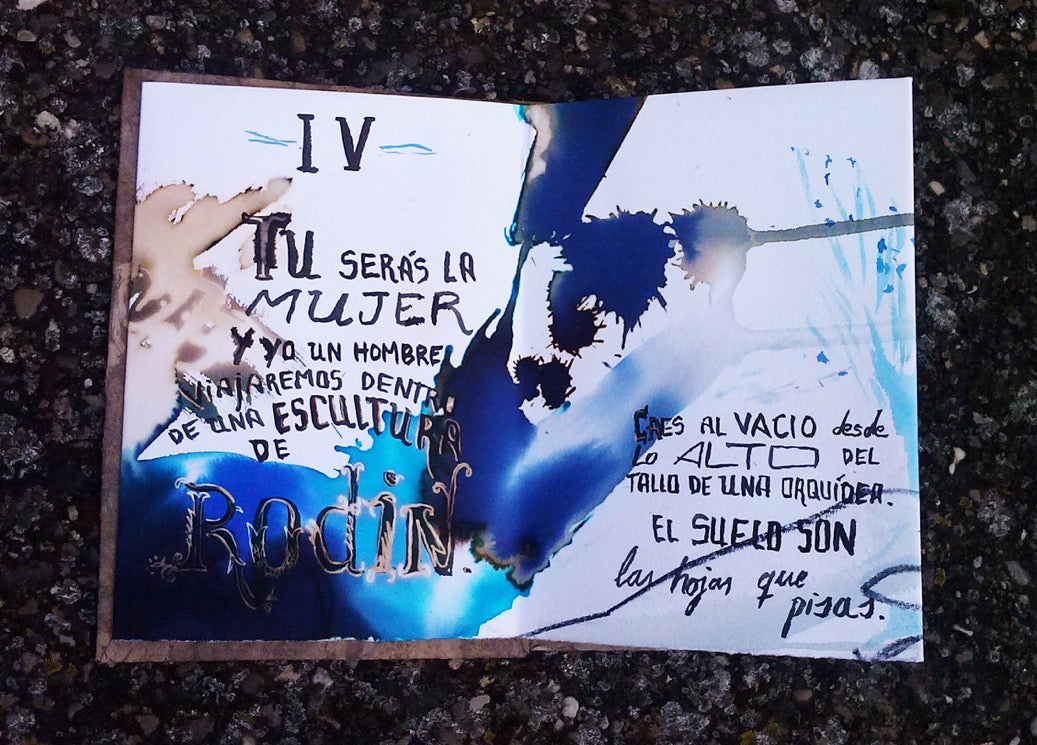 IV
TU SERÁS LA
MUJER
Y YO UN HOMBRE
VIAJAREMOS DENTRO
DE UNA ESCULTURA
DE
RodiN.
CAES AL VACIO desde
Lo ALTO DEL
TALLO DE UNA ORQUÍDEA.
EL SUELO SON
las hojas que
pisas.